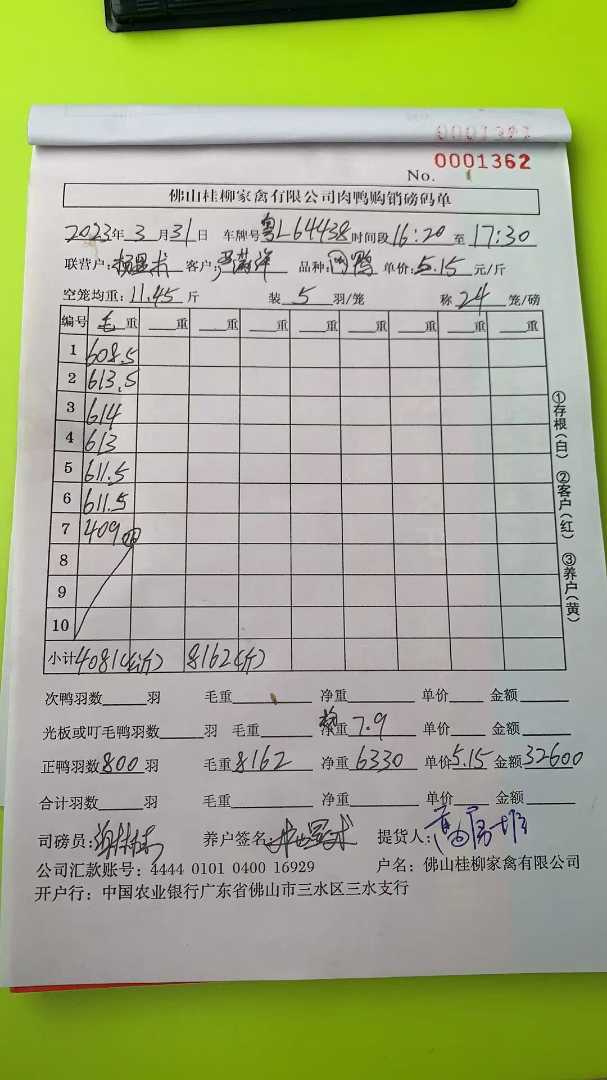 0001362
No.
佛山桂柳家禽有限公司肉鸭购销磅码单
2023年 3 月 31 日 车牌号 粤L64438 时间段 16:20 至 17:30
联营户: 客户: 品种: 肉鸭 单价: 5.15 元/斤
空笼均重: 11.45 斤 装 5 羽/笼 称 24 笼/磅
编号 毛重 重 重 重 重 重 重 重 重
1 608.5
2 613.5
3 614
4 613
5 611.5
6 611.5
7 409
8
9
10
小计 4081(公斤) 8162(斤)
①存根(白) ②客户(红) ③养户(黄)
次鸭羽数 羽 毛重 净重 单价 金额
光板或叮毛鸭羽数 羽 毛重 净重 7.9 单价 金额
正鸭羽数 800 羽 毛重 8162 净重 6330 单价 5.15 金额 32600
合计羽数 羽 毛重 净重 单价 金额
司磅员: 养户签名: 提货人:
公司汇款账号: 4444 0101 0400 16929 户名: 佛山桂柳家禽有限公司
开户行: 中国农业银行广东省佛山市三水区三水支行